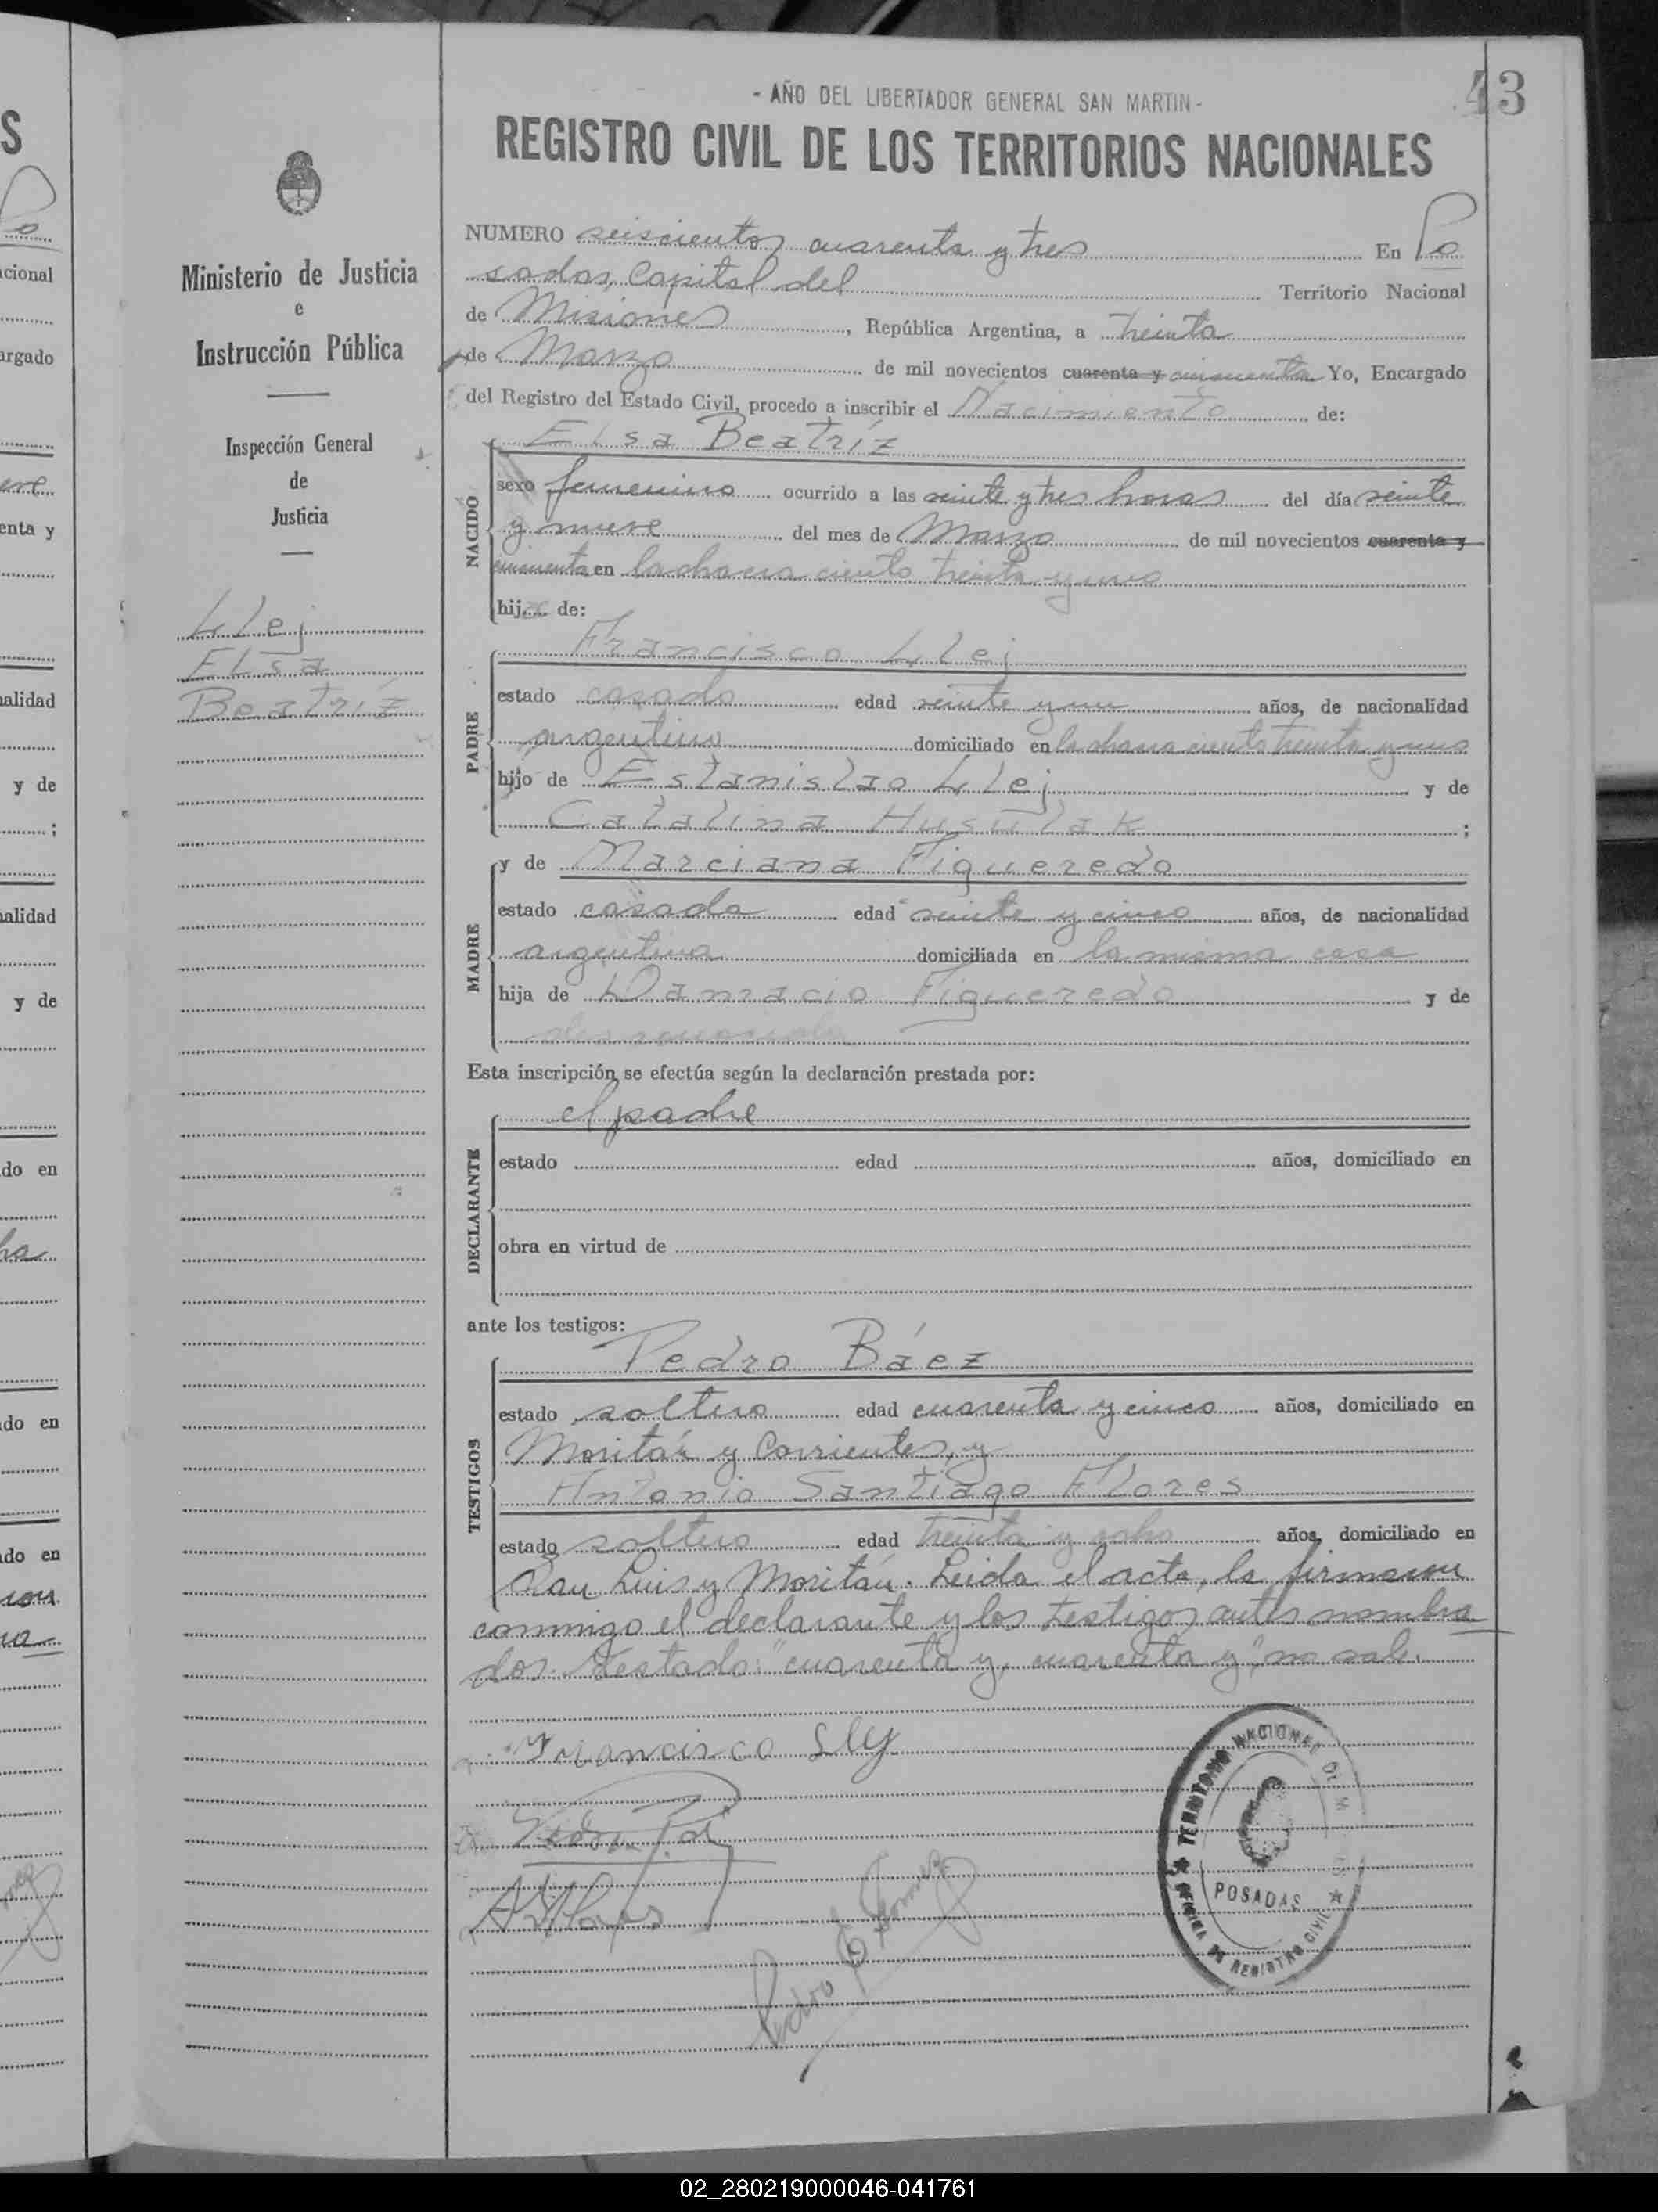 - AÑO DEL LIBERTADOR GENERAL SAN MARTIN -
43
REGISTRO CIVIL DE LOS TERRITORIOS NACIONALES
Ministerio de Justicia
e
Instrucción Pública
Inspección General
de
Justicia
Llej
Elsa
Beatríz
NUMERO seiscientos cuarenta y tres En Po
sadas, Capital del Territorio Nacional
de Misiones, República Argentina, a treinta
de Marzo de mil novecientos cuarenta y cincuenta Yo, Encargado
del Registro del Estado Civil, procedo a inscribir el Nacimiento de:
Elsa Beatríz
NACIDO
sexo femenino ocurrido a las veinte y tres horas del día veinte
y nueve del mes de Marzo de mil novecientos cuarenta y
cincuenta en la chacra ciento treinta y uno
hija de:
Francisco Llej
PADRE
estado casado edad veinte y un años, de nacionalidad
argentino domiciliado en la chacra ciento treinta y uno
hijo de Estanislao Llej y de
Catalina Husulak ;
MADRE
y de Marciana Figueredo
estado casada edad veinte y cinco años, de nacionalidad
argentina domiciliada en la misma casa
hija de Damacio Figueredo y de
desconocida
Esta inscripción se efectúa según la declaración prestada por:
el padre
DECLARANTE
estado edad años, domiciliado en
obra en virtud de
ante los testigos:
Pedro Báez
TESTIGOS
estado soltero edad cuarenta y cinco años, domiciliado en
Moritán y Corrientes, y
Antonio Santiago Flores
estado soltero edad treinta y ocho años, domiciliado en
San Luis y Moritán. Leída el acta, la firmaron
conmigo el declarante y los testigos antes nombra
dos. Testado: "cuarenta y, cuarenta y", no vale.
Francisco Lly
Pedro
A S Flores
Pedro Gomez
TERRITORIO NACIONAL DE MISIONES
POSADAS
OFICINA DE REGISTRO CIVIL
02_280219000046-041761